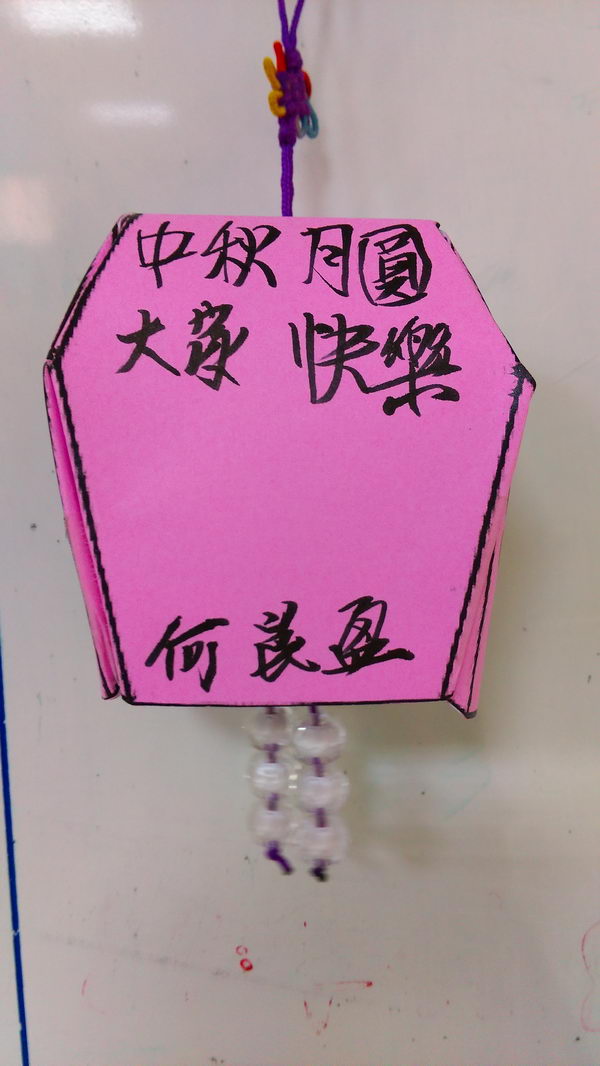 中秋月圓
大家快樂
何美盈